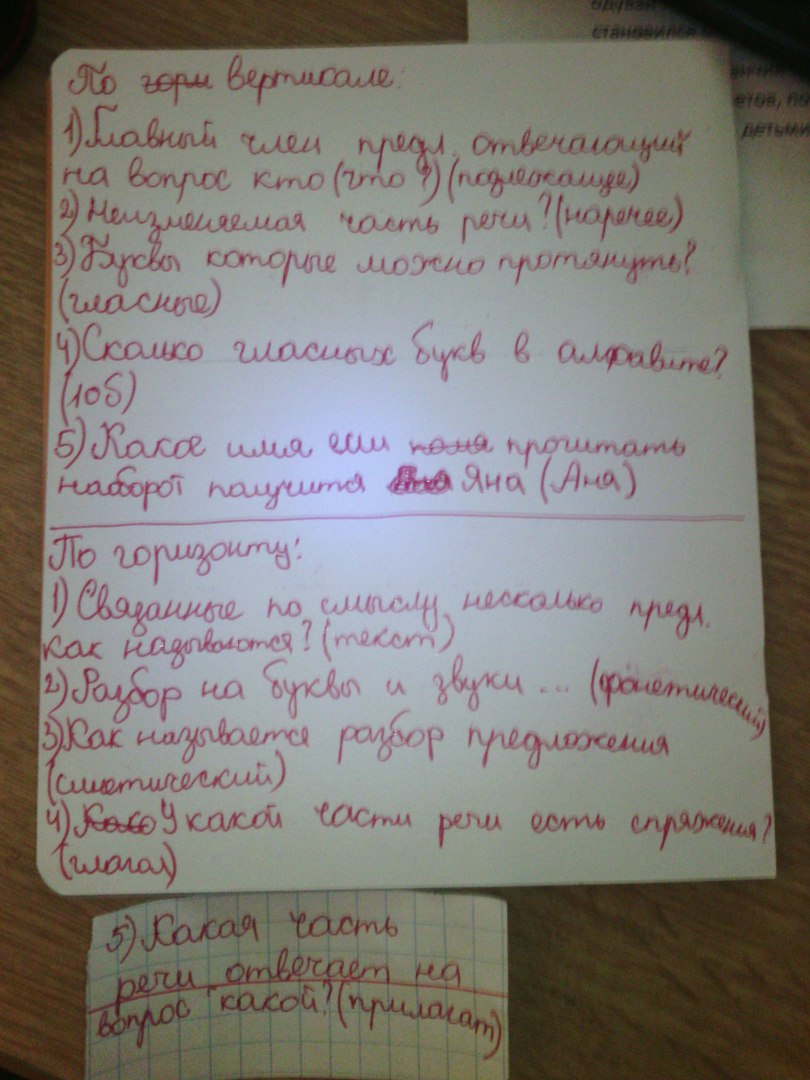 По гори вертикале:
1) Главный член предл. отвечающий
на вопрос кто (что?) (подлежащее)
2) Неизменяемая часть речи? (наречее)
3) Буквы которые можно протянуть?
(гласные)
4) Сколько гласных букв в алфавите?
(10б)
5) Какое имя если прочитать
наоборот получится Яна (Аня)
По горизонту:
1) Связанные по смыслу несколько предл.
как называются? (текст)
2) Разбор на буквы и звуки ... (фонетический)
3) Как называется разбор предложения
(синтетический)
4) У какой части речи есть спряжения?
(глагол)
5) Какая часть
речи отвечает на
вопрос какой? (прилагат)
становился
етов, по
детьми